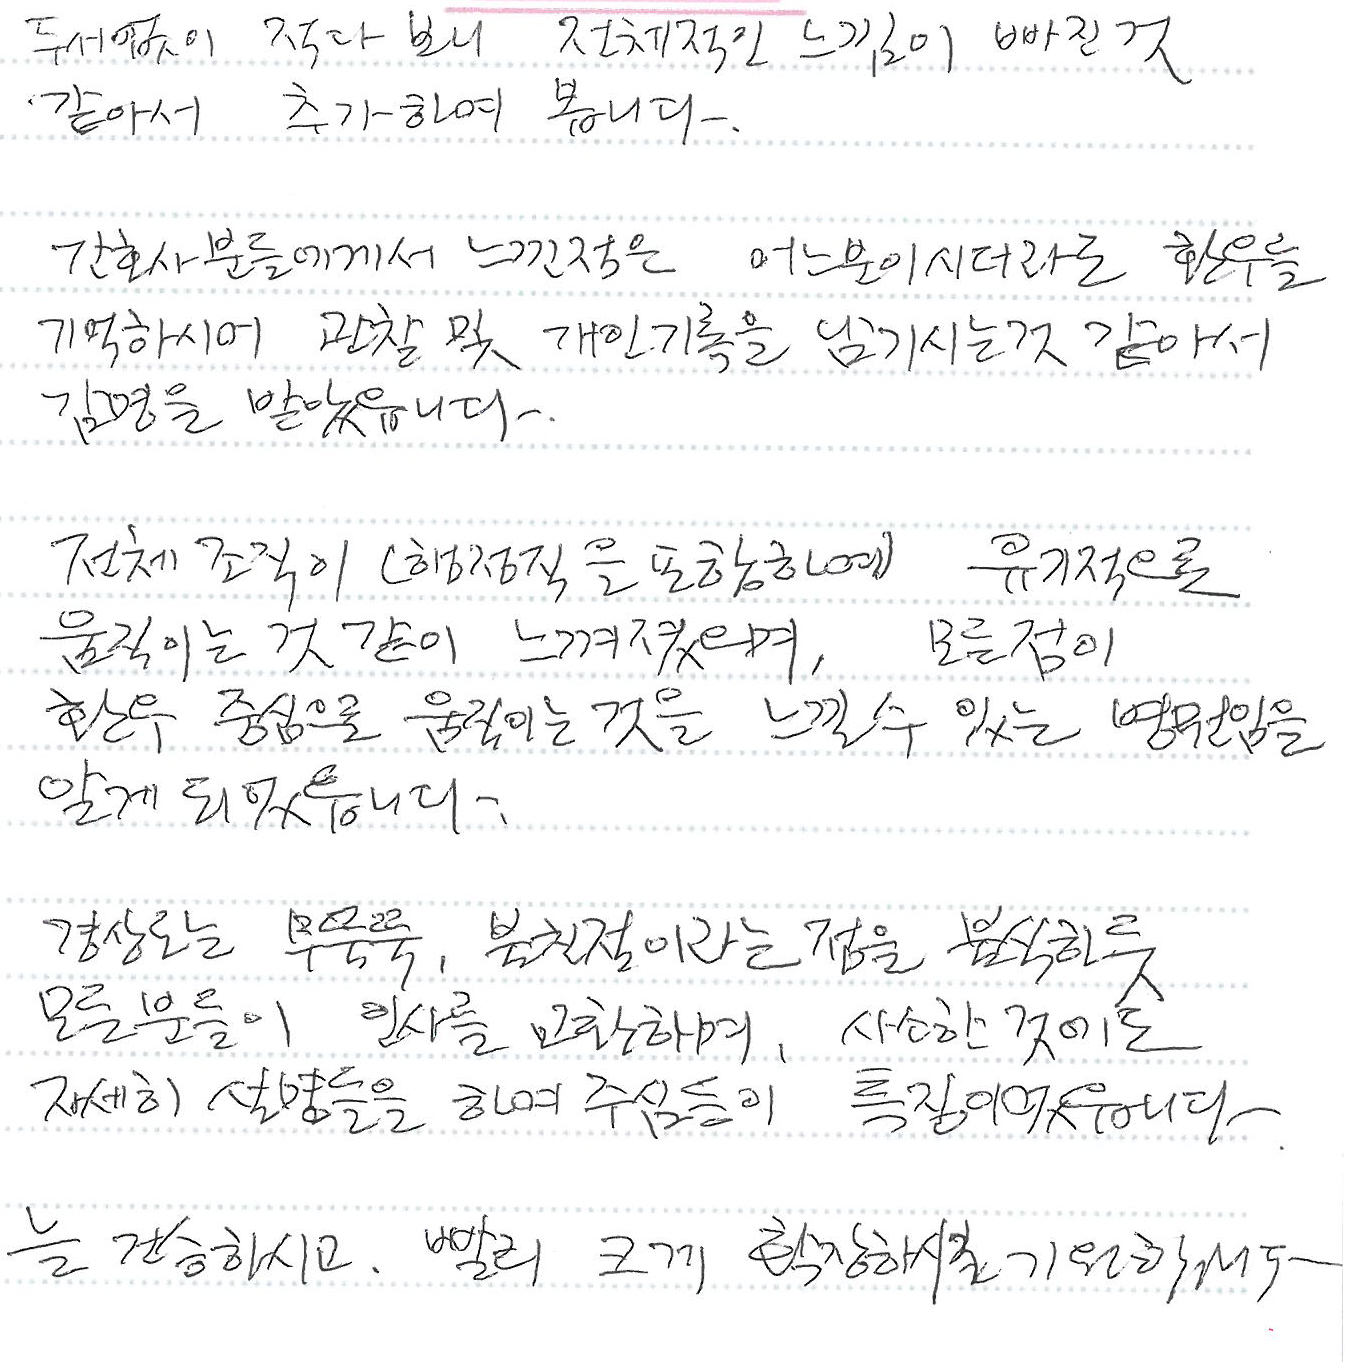 두서없이 적다 보니 전체적인 느낌이 빠진 것
같아서 추가하여 봅니다.
간호사분들에게서 느낀점은 어느분이시더라도 환우를
기억하시어 관찰 및 개인기록을 남기시는것 같아서
감명을 받았습니다.
전체 조직이 (행정직을 포함하여) 유기적으로
움직이는 것 같이 느껴졌으며, 모든점이
환우 중심으로 움직이는 것을 느낄 수 있는 병원임을
알게 되었습니다.
경상도는 무뚝뚝, 불친절이라는 점을 불식하듯
모든분들이 인사를 교환하며, 사소한 것에도
자세히 설명들을 하여 주심들이 특질이었습니다.
늘 건승하시고. 빨리 크게 확장하시길 기원합니다